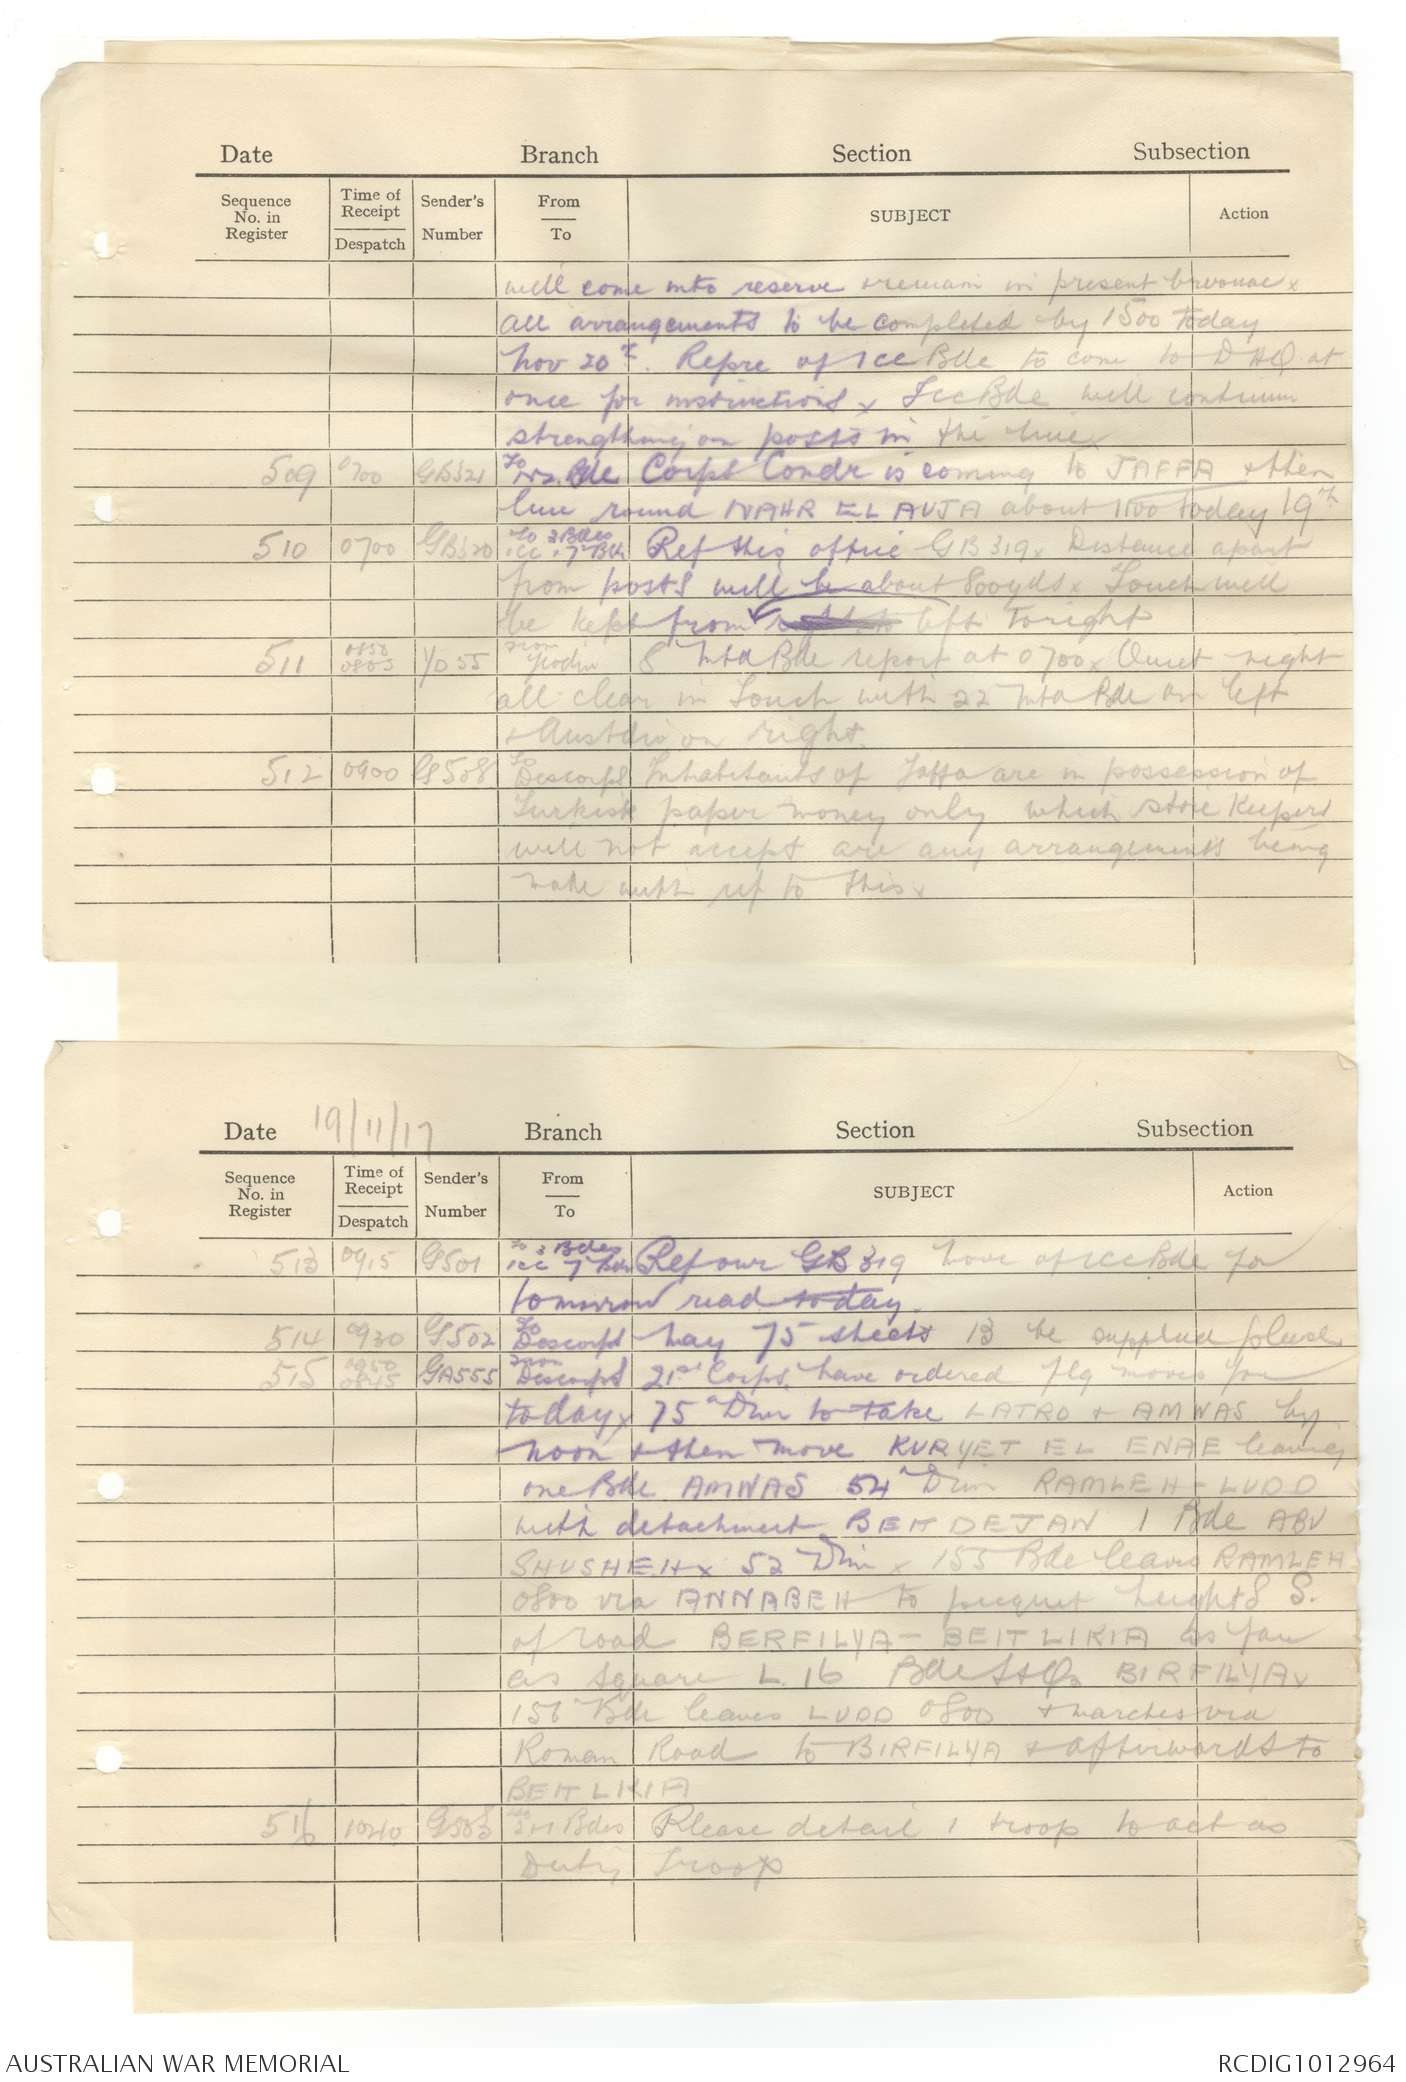 Date Branch Section Subsection
Sequence No. in Register Time of Receipt Despatch Sender's Number From To SUBJECT Action
will come into reserve & remain in present bivouac x
all arrangements to be completed by 1500 today
Nov 20th. Repre of ICC Bde to come to DHQ at
once for instructions x ICC Bde will continue
strengthening posts in the line x
509 0700 GB321 To NZ. Bde Corps Comdr is coming to JAFFA & then
line round NAHR EL AUJA about 1100 today 19th
510 0700 GB320 To 3 Bdes ICC & 7 Bde Ref this office GB 319 x Distance apart
from posts will be about 800yds x Touch will
be kept from left to right
511 0850 0805 YD 55 From Yeodiv 8 Mtd Bde report at 0700 x Quiet night
all clear in touch with 22 Mtd Bde on left
& Austdiv on right
512 0900 G508 To Descorps Inhabitants of Jaffa are in possession of
Turkish paper money only which store keepers
will not accept are any arrangements being
made with ref to this x
Date 19/11/17 Branch Section Subsection
Sequence No. in Register Time of Receipt Despatch Sender's Number From To SUBJECT Action
513 0915 G501 To 3 Bdes ICC 7 Bde Ref our GB 319 move of ICC Bde for
tomorrow read today.
514 0930 G502 To Descorps May 75 sheets 13 be supplied please
515 0950 0845 GA555 From Descorps 21st Corps have ordered flg moves for
today x 75th Divn to take LATRO & AMWAS by
noon & then move KURYET EL ENAB leaving
one Bde AMWAS 54th Divn RAMLEH - LUDD
with detachment BEIT DEJAN 1 Bde ABU
SHUSHEH x 52nd Divn x 155 Bde leaves RAMLEH
0800 via ANNABEH to picquet heights S.
of road BERFILYA - BEIT LIKIA as far
as square L. 16 Bde HQ BIRFILYA x
156 Bde leaves LUDD 0800 & marches via
Roman Road to BIRFILYA & afterwards to
BEIT LIKIA
516 1040 G503 Bdes Please detail 1 troop to act as
Duty Troop
AUSTRALIAN WAR MEMORIAL RCDIG1012964